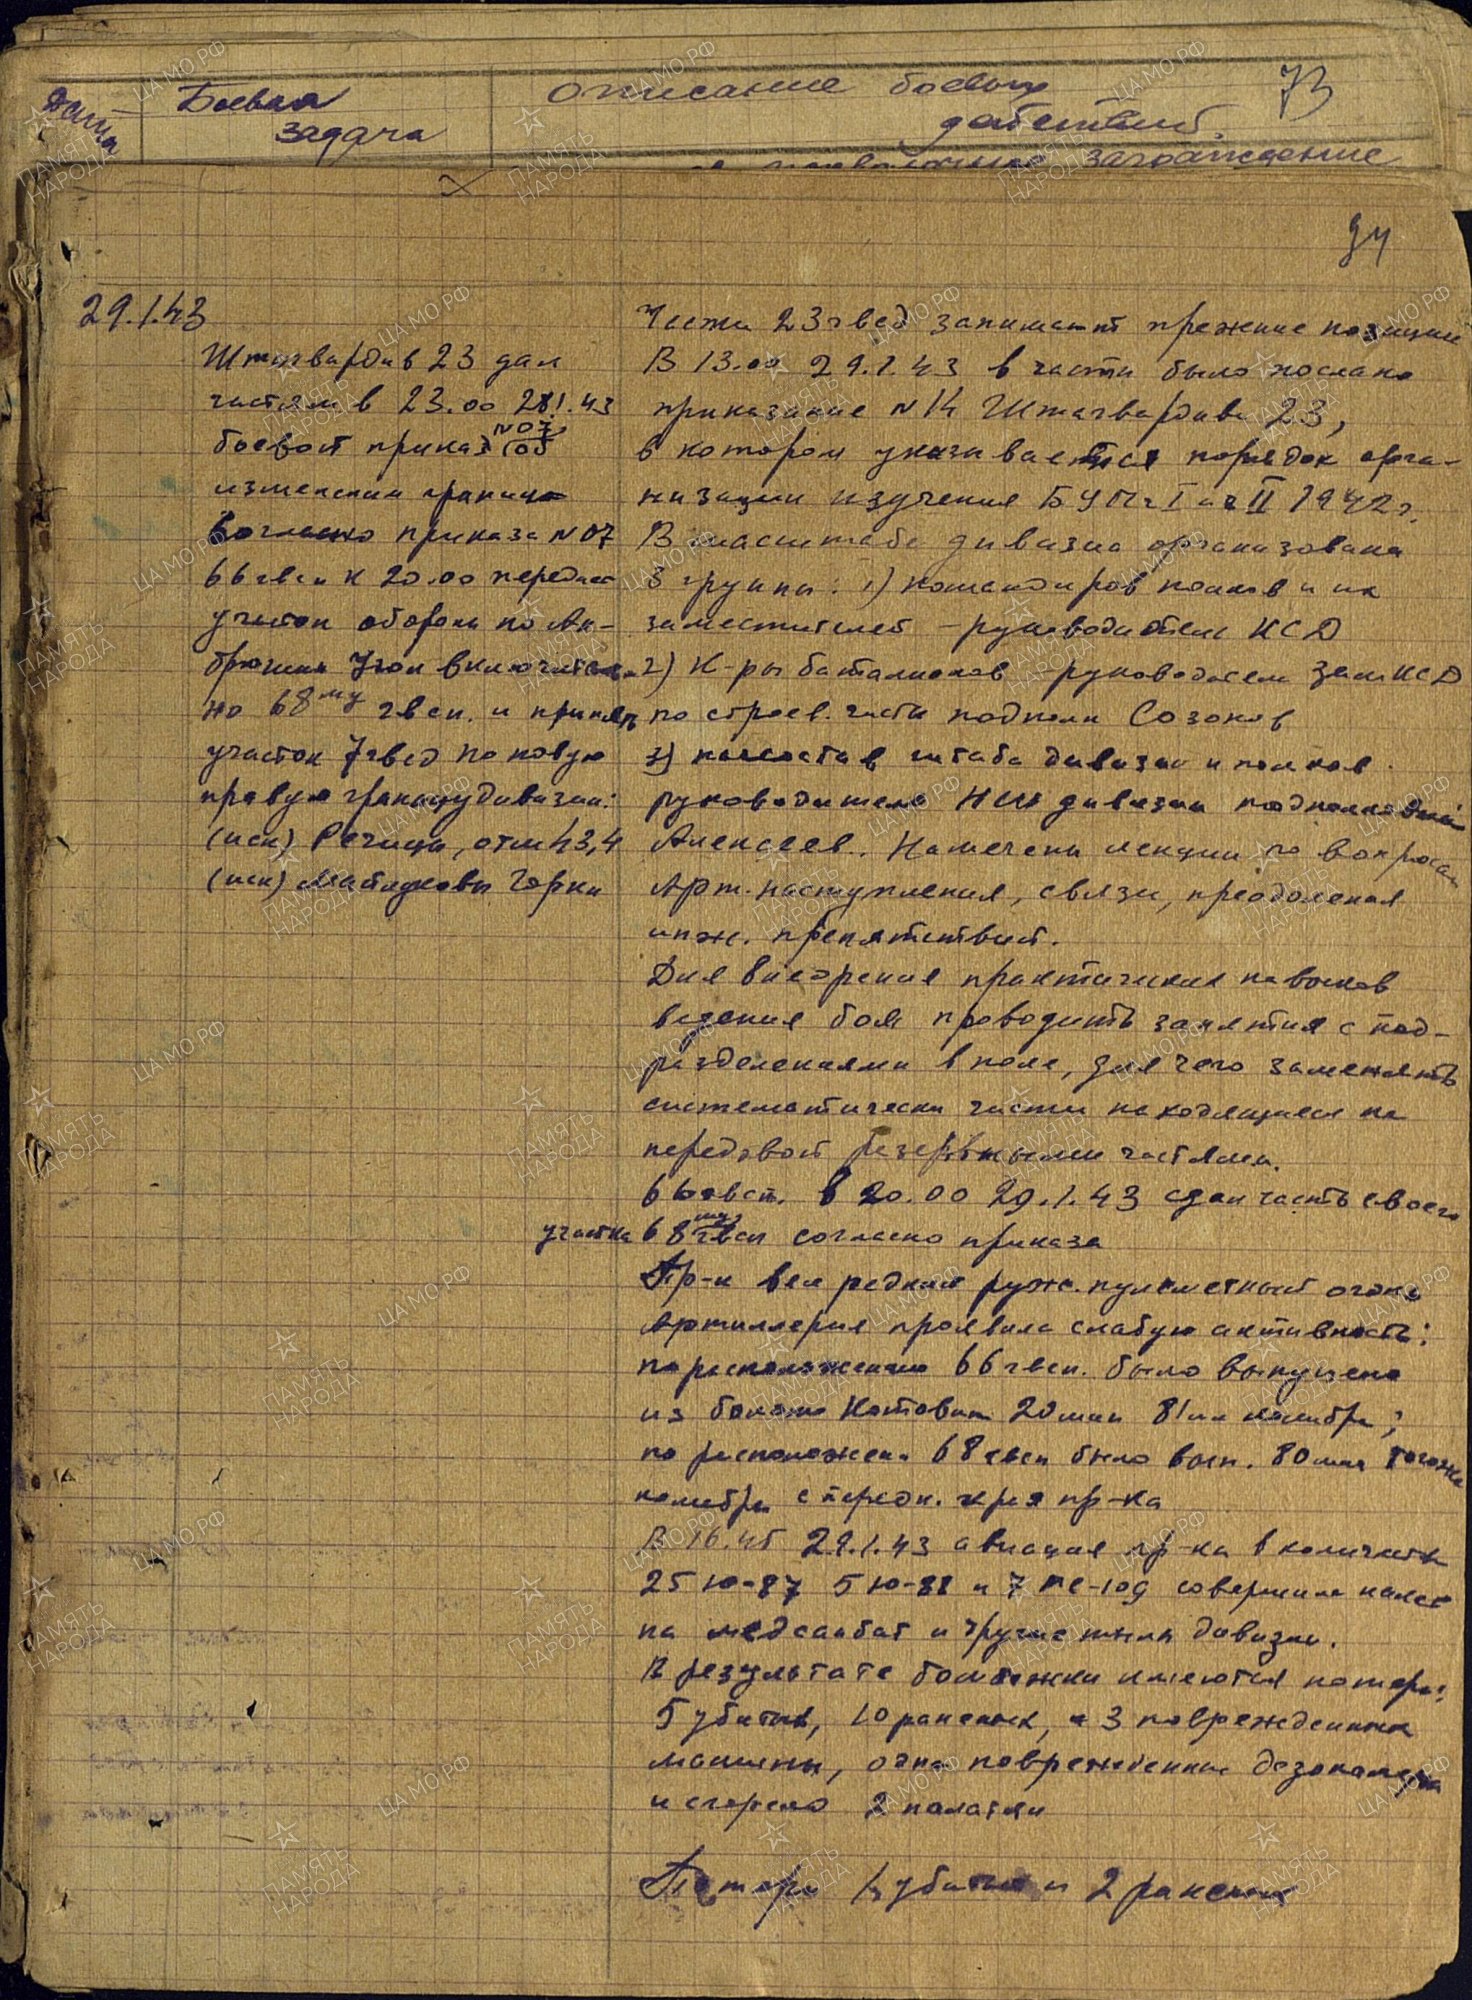 Дата
Боевая
задача
описание боевых
действий.
73
заграждение
94
29.1.43
Штагвардив 23 дал
частям в 23.00 28.1.43
боевой приказ №07 /об
изменении границ
Согласно приказа №07
66 гвсп к 20.00 передает
участок обороны по Ам-
бразина 7гои включитель-
но 68му гвсп. и принять
участок 7гвсд по новую
правую границу дивизии:
(иск) Речицы, отм 43,4
(иск) Матцковы Горки
Части 23 гвсд занимают прежние позиции
В 13.00 29.1.43 в части было послано
приказание №14 Штагвардива 23,
в котором указывается порядок орга-
низации изучения БУП ч I и ч II 1942 г.
В масштабе дивизии организована
3 группы: 1) командиров полков и их
заместителей – руководитель КСД
2) К-ры батальонов руководителем зам КСД
по строев. части подполк Созонов
3) начсостав штаба дивизии и полков
руководителем НШ дивизии подполковник
Алексеев. Намечены лекции по вопросам
Арт. наступления, связи, преодоления
инж. препятствий.
Для внедрения практических навыков
ведения боя проводить занятия с под-
разделениями в поле, для чего заменять
систематически части находящиеся на
передовой резервными частями.
66 гвсп. в 20.00 29.1.43 сдал часть своего
участка 68му гвсп согласно приказа
Пр-к вел редкий руж. пулеметный огонь
Артиллерия проявила слабую активность:
по расположению 66 гвсп. было выпущено
из болото Котовик 20 мин 81мм калибра;
по расположен. 68 гвсп было вып. 80 мин того же
калибра с передн. края пр-ка
В 16.45 29.1.43 авиация пр-ка в количестве
25 Ю-87 5 Ю-88 и 7 МЕ-109 совершила налет
на медсанбат и другие тылы дивизии.
В результате бомбежки имеются потери:
5 убитых, 10 раненых, и 3 поврежденных
машины, одна поврежденная дезокамера
и сгорело 2 палатки
Потери 4 убитых и 2 раненых